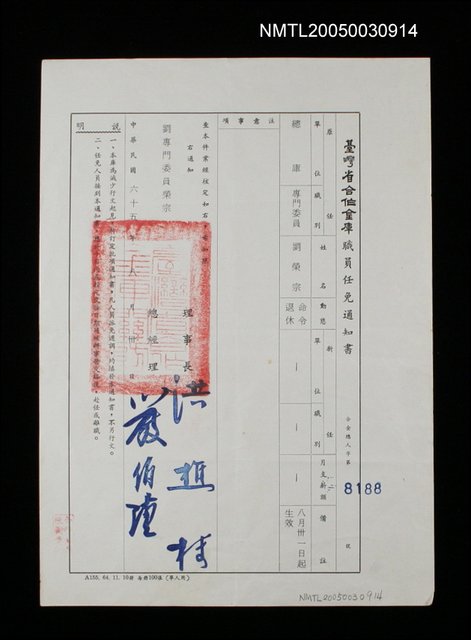 NMTL20050030914
臺灣省合作金庫職員任免通知書
合金總人字第 8188 號
原任
單位
職別
姓名
動態
新任
單位
職別
月支薪額
備註
總庫
專門委員
劉榮宗
命令退休
—
—
—
八月卅一日起生效
注意事項
查本件業經核定如右
右通知
劉專門委員榮宗
中華民國六十五年八月卅日
理事長 洪樵榕
總經理
說明
一、本庫為減少行文起見
凡人員任免遷調,均填發本通知書,不另行文。
二、任免人員接到本通知書
赴任或離職。
A155. 64. 11. 10
100
NMTL20050030914